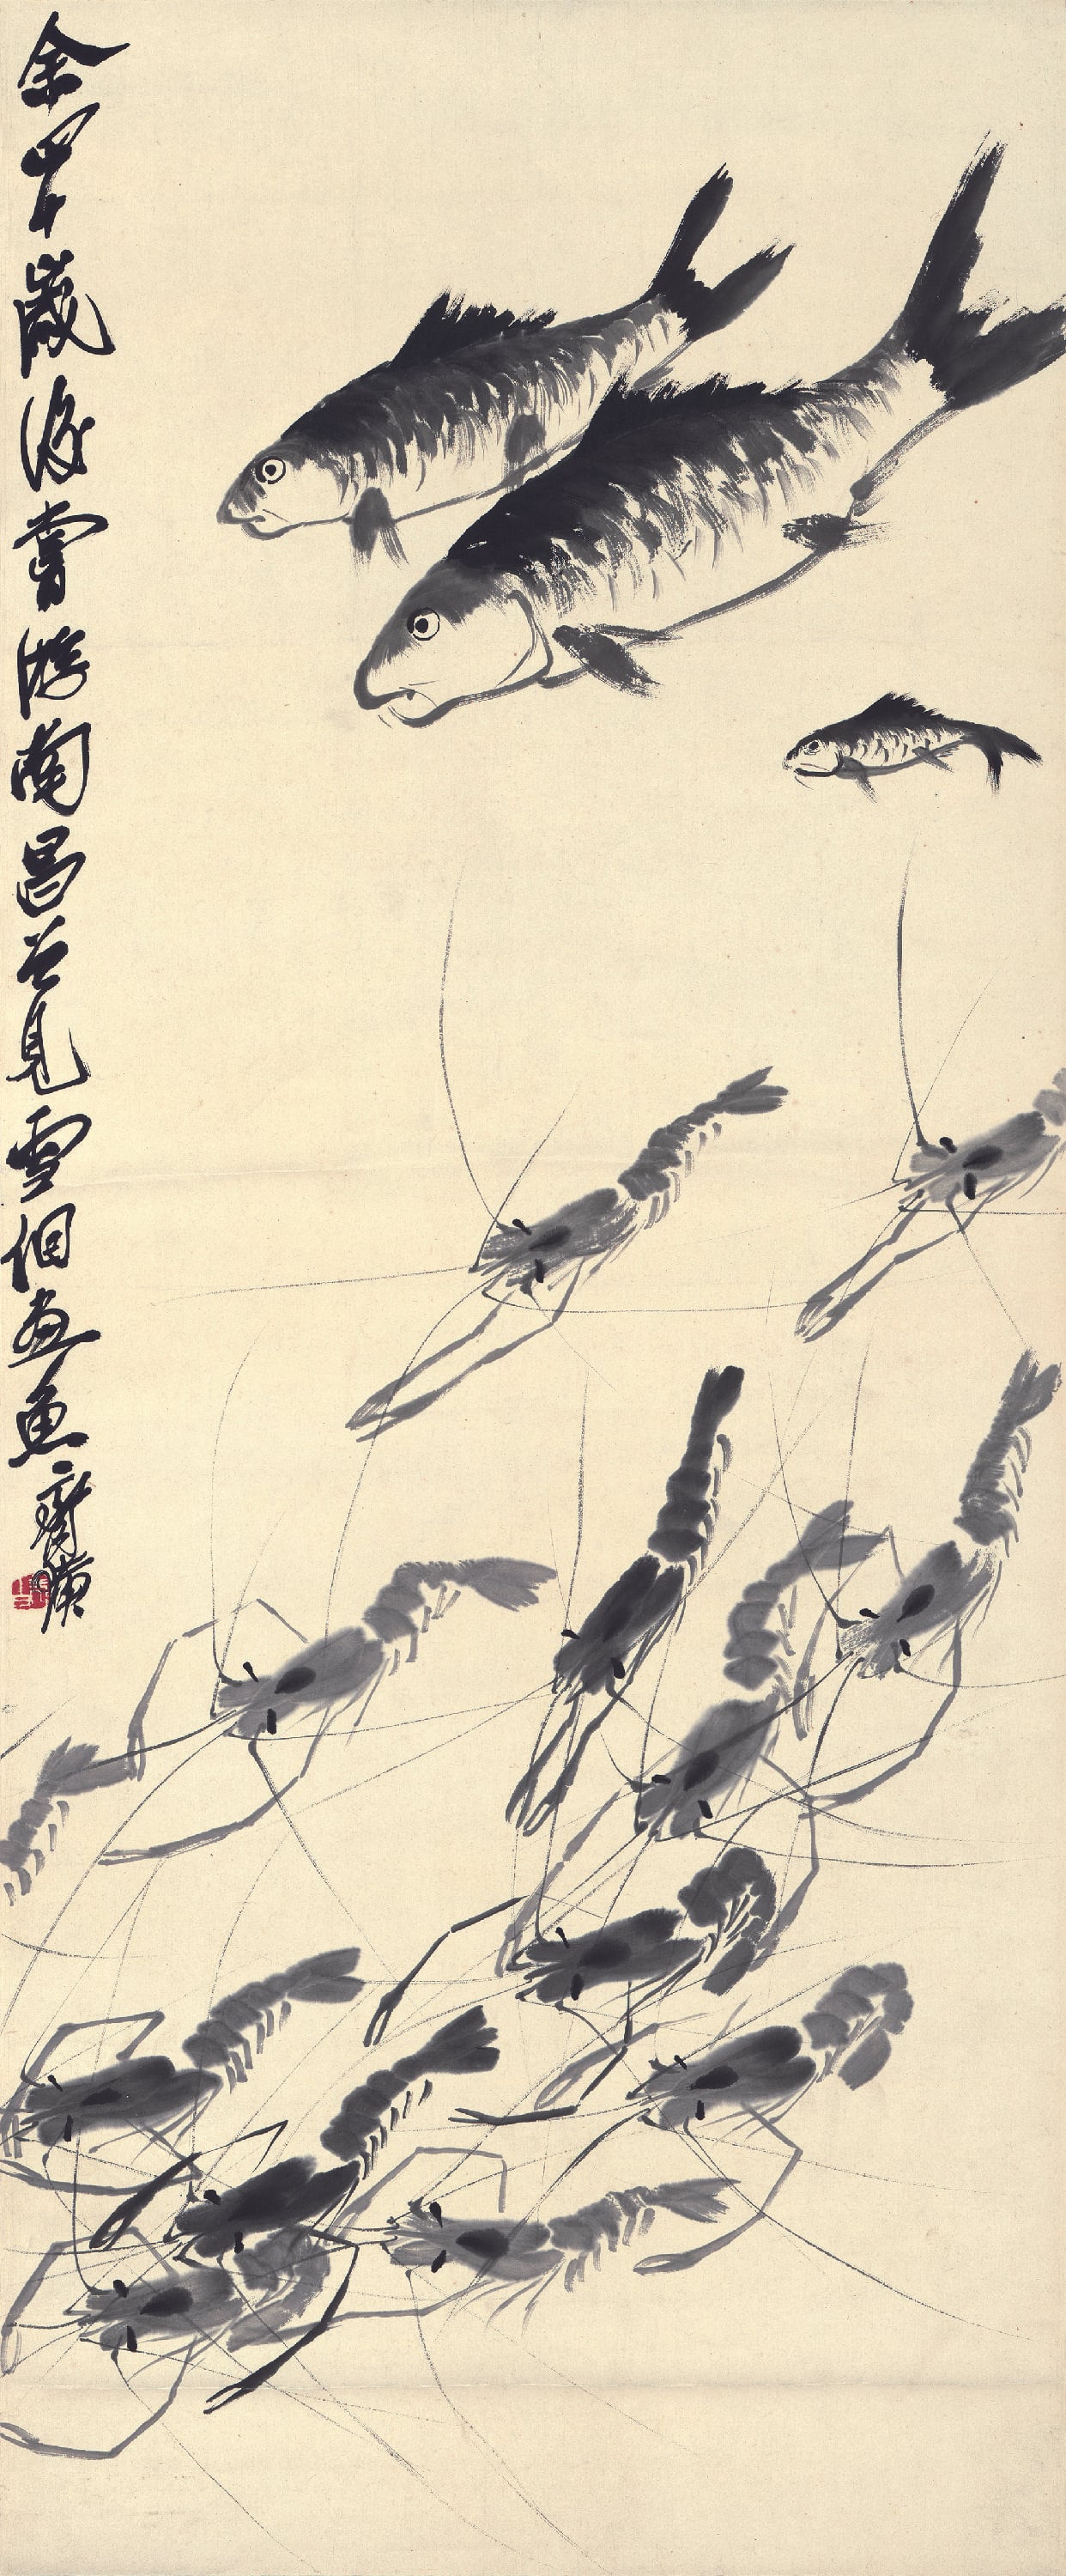 余四十歲後嘗游南昌曾見雪个画魚齊璜